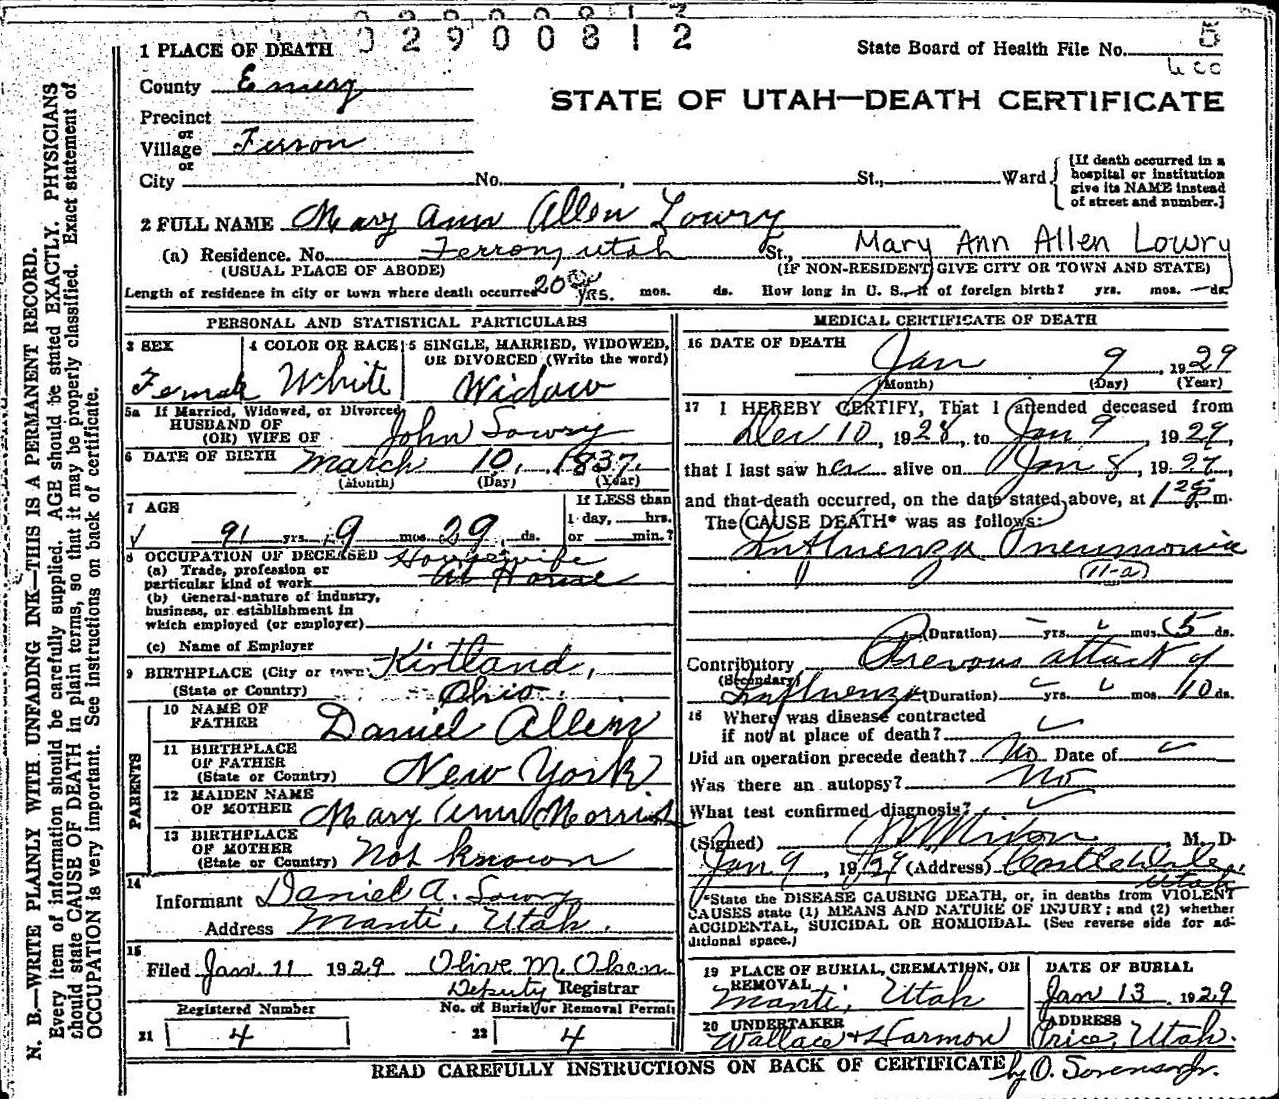 0 2 9 0 0 8 1 2
1 PLACE OF DEATH
State Board of Health File No. 5
County Emery
STATE OF UTAH—DEATH CERTIFICATE
Precinct
or
Village Ferron
or
City No. , St., Ward
[If death occurred in a
hospital or institution
give its NAME instead
of street and number.]
2 FULL NAME Mary Ann Allen Lowry
(a) Residence. No. Ferron, Utah St., Mary Ann Allen Lowry
(USUAL PLACE OF ABODE) (IF NON-RESIDENT GIVE CITY OR TOWN AND STATE)
Length of residence in city or town where death occurred 20 yrs. mos. ds. How long in U. S., if of foreign birth? yrs. mos. ds.
PERSONAL AND STATISTICAL PARTICULARS
3 SEX
Female
4 COLOR OR RACE
White
5 SINGLE, MARRIED, WIDOWED,
OR DIVORCED (Write the word)
Widow
5a If Married, Widowed, or Divorced
HUSBAND OF
(OR) WIFE OF John Lowry
6 DATE OF BIRTH March 10, 1837
(Month) (Day) (Year)
7 AGE
91 yrs. 9 mos. 29 ds.
If LESS than
1 day, hrs.
or min.?
8 OCCUPATION OF DECEASED Housewife
(a) Trade, profession or
particular kind of work At Home
(b) General nature of industry,
business, or establishment in
which employed (or employer)
(c) Name of Employer
9 BIRTHPLACE (City or town) Kirtland,
(State or Country) Ohio.
PARENTS
10 NAME OF
FATHER Daniel Allen
11 BIRTHPLACE
OF FATHER
(State or Country) New York
12 MAIDEN NAME
OF MOTHER Mary Ann Morris
13 BIRTHPLACE
OF MOTHER
(State or Country) Not known
14
Informant Daniel A. Lowry
Address Manti, Utah.
15
Filed Jan 11 1929 Olive M. Olsen
Deputy Registrar
Registered Number No. of Burial or Removal Permit
21 4 22 4
MEDICAL CERTIFICATE OF DEATH
16 DATE OF DEATH
Jan 9, 1929
(Month) (Day) (Year)
17 I HEREBY CERTIFY, That I attended deceased from
Dec 10, 1928, to Jan 9 1929,
that I last saw her alive on Jan 8, 1929,
and that death occurred, on the date stated above, at m.
The CAUSE DEATH* was as follows:
Influenza Pneumonia
(11-a)
(Duration) yrs. mos. 5 ds.
Contributory Previous attack of
(Secondary)
Influenza (Duration) yrs. mos. 10 ds.
18 Where was disease contracted
if not at place of death?
Did an operation precede death? No Date of
Was there an autopsy? No
What test confirmed diagnosis?
(Signed) Nixon M. D.
Jan 9, 1929 (Address) Castle Dale,
Utah
*State the DISEASE CAUSING DEATH, or, in deaths from VIOLENT
CAUSES state (1) MEANS AND NATURE OF INJURY; and (2) whether
ACCIDENTAL, SUICIDAL OR HOMICIDAL. (See reverse side for ad-
ditional space.)
19 PLACE OF BURIAL, CREMATION, OR
REMOVAL
Manti, Utah
DATE OF BURIAL
Jan 13, 1929
20 UNDERTAKER
Wallace & Harmon
ADDRESS
Price, Utah.
READ CAREFULLY INSTRUCTIONS ON BACK OF CERTIFICATE by O. Sorenson Jr.
N. B.—WRITE PLAINLY WITH UNFADING INK—THIS IS A PERMANENT RECORD.
Every item of information should be carefully supplied. AGE should be stated EXACTLY. PHYSICIANS
should state CAUSE OF DEATH in plain terms, so that it may be properly classified. Exact statement of
OCCUPATION is very important. See instructions on back of certificate.